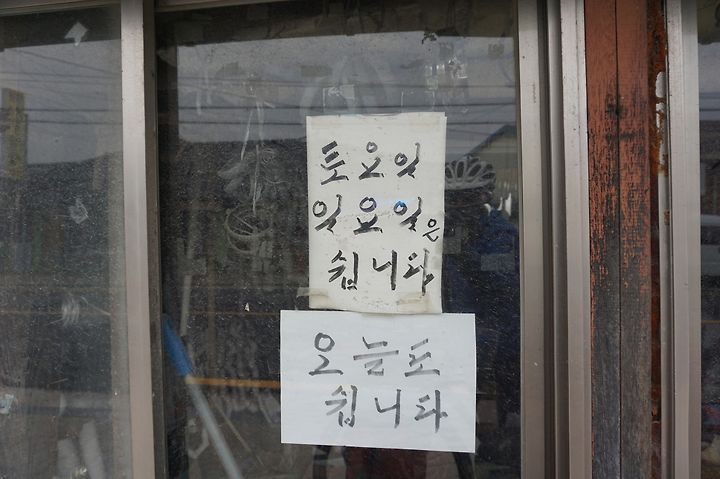 토요일
일요일은
쉽니다
오늘도
쉽니다